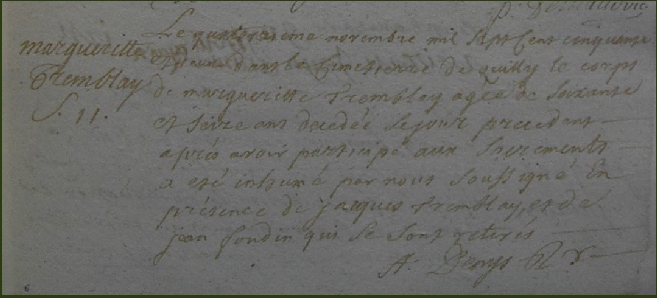 margueritte
Tremblay
S. 11.
Le quatorsieme novembre mil sept Cent cinquante
dans Le Cimetierre de quilly le corps
de margueritte Tremblay agée de Soixante
et Seize ans decedée le jour precedent
aprés avoir participé aux Sacrements
a esté inhumé par nous Soussigné en
présence de jacques tremblay, et de
jean qui Se Sont retirés
A. Denys